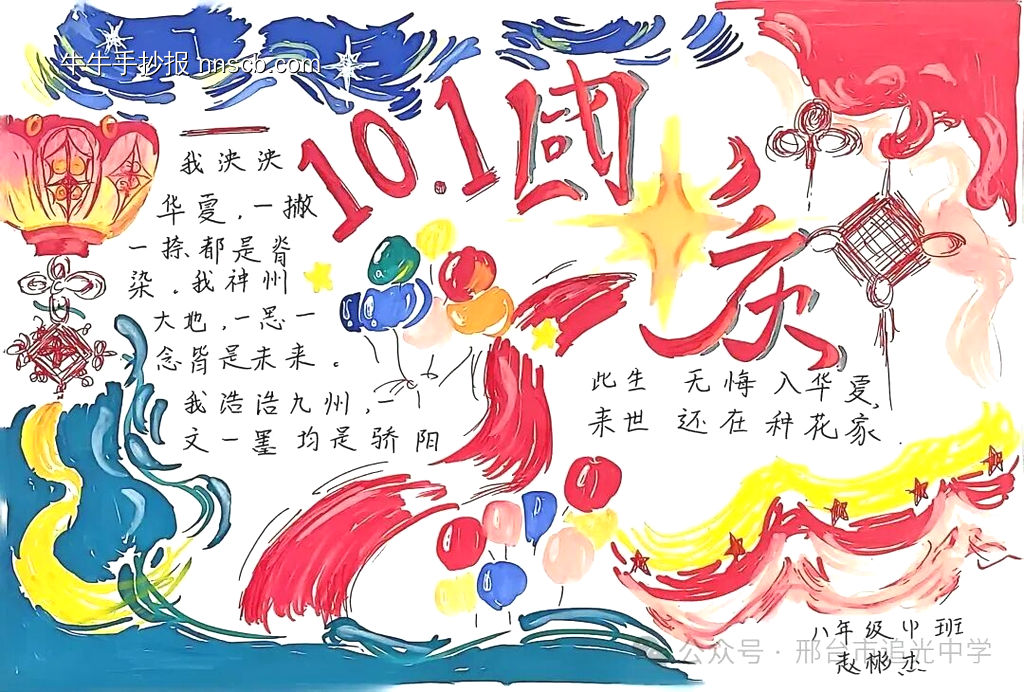 牛牛手抄报 nnscb.com
10.1 國
庆
我泱泱
华夏，一撇
一捺都是脊
染。我神州
大地，一思一
念皆是未来。
我浩浩九州，一
文一墨均是骄阳
此生 无悔入华夏，
来世 还在种花家.
八年级4班
赵彬杰
公众号·邢台市追光中学